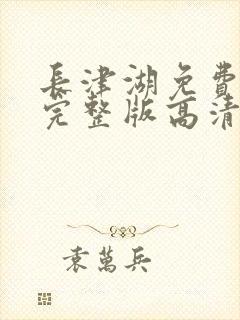 長津湖免費
完整版高清
袁萬兵